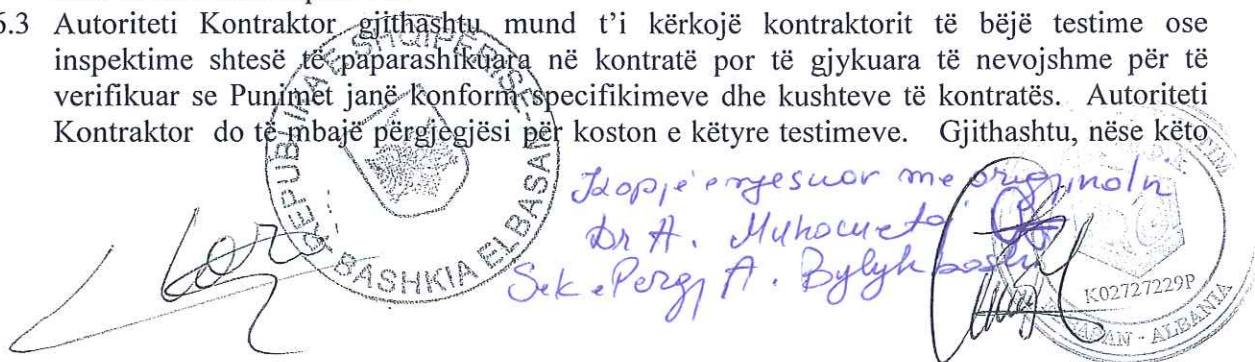 6.3 Autoriteti Kontraktor gjithashtu mund t'i kërkojë kontraktorit të bëjë testime ose
inspektime shtesë të paparashikuara në kontratë por të gjykuara të nevojshme për të
verifikuar se Punimet janë konform specifikimeve dhe kushteve të kontratës. Autoriteti
Kontraktor do të mbajë përgjegjësi për koston e këtyre testimeve. Gjithashtu, nëse këto
REPUBLIKA E SHQIPERISE
BASHKIA ELBASAN
me originalin
Dr A.
Sek e A. Bylykbashi
K02727229P
ELBASAN - ALBANIA